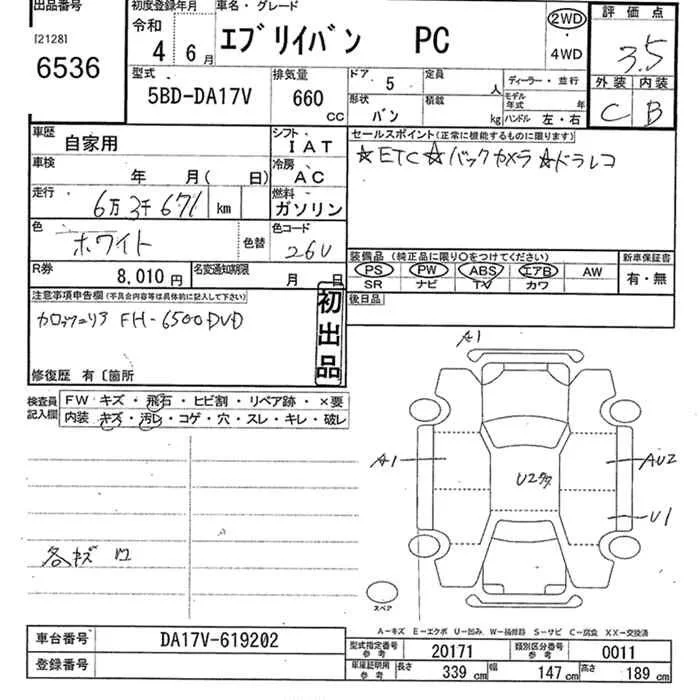 出品番号 初度登録年月 車名・グレード 2WD 評価点
[2128] 令和 4WD
6536 4 6月 エブリイバン PC 3.5
型式 排気量 ドア 5 定員 人 ディーラー・並行 外装 内装
5BD-DA17V 660 CC 形状 バン 積載 kg モデル年式 年 ハンドル 左・右 C B
車歴 自家用 シフト IAT セールスポイント(正常に機能するものに限ります)
車検 年 月( 日) 冷房 AC ☆ETC☆バックカメラ☆ドラレコ
走行 6万3千671 km 燃料 ガソリン
色 ホワイト 色替 色コード 26U 装備品(純正品に限り○をつけてください) 新車保証書
PS PW ABS エアB AW 有・無
R券 8,010円 名変通知期限 月 日 SR ナビ TV カワ
注意事項申告欄(不具合内容等は具体的に記入して下さい) 初出品 後日品
カロッツェリア FH-6500DVD
修復歴 有〔箇所
検査員記入欄 FW キズ・飛石・ヒビ割・リペア跡・×要
内装・キズ・汚レ・コゲ・穴・スレ・キレ・破レ
A1
A1 U2多 AU2
U1
各キズ凹
スペア
A-キズ E-エクボ U-凹み W-補修跡 S-サビ C-腐食 XX-交換済
車台番号 DA17V-619202 型式指定番号参考 20171 類別区分番号参考 0011
登録番号 車庫証明用参考 長さ 339cm 幅 147cm 高さ 189cm